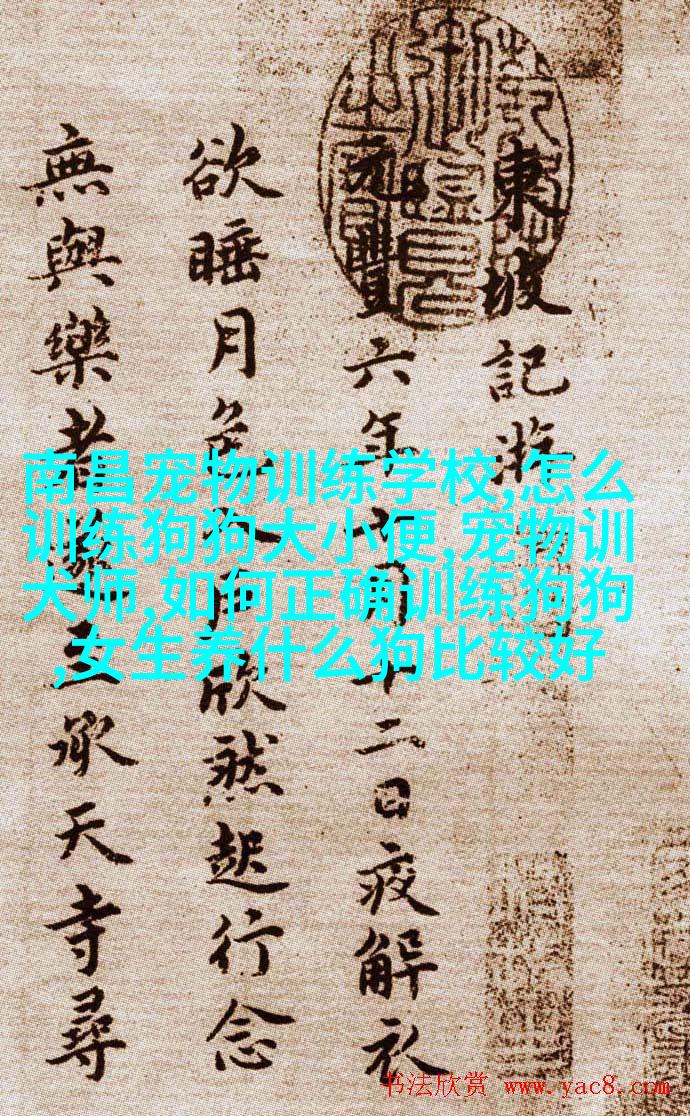 東坡記游
元豐六年十月十二日夜解衣
欲睡月色入户欣然起行念
無與樂者遂至承天寺尋
南昌宠物训练学校,怎么
训练狗狗大小便,宠物训
犬师,如何正确训练狗狗
,女生养什么狗比较好
书法欣赏 www.yac8.com